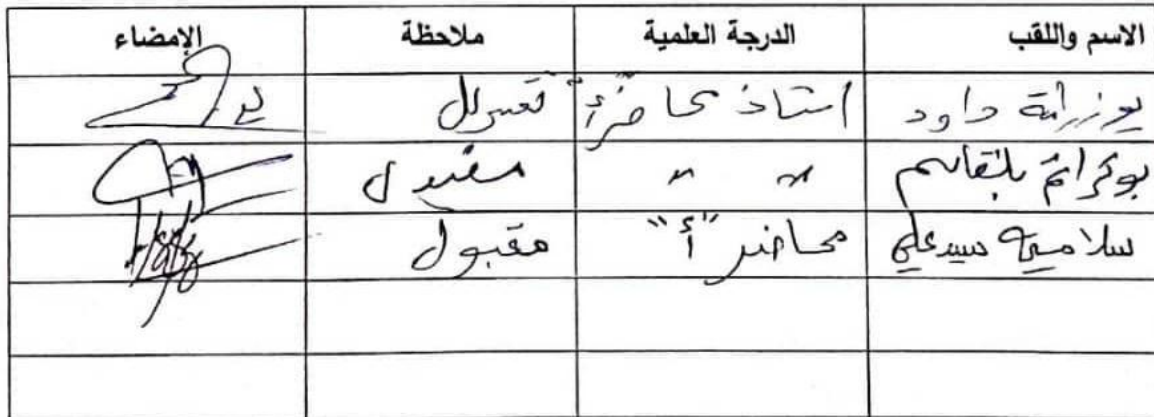 الاسم واللقب الدرجة العلمية ملاحظة الإمضاء
بوزرانة داود استاذ محاضر "أ"
بوكراتم بلقاسم " " مقبول
سلامي سيدعلي محاضر "أ" مقبول